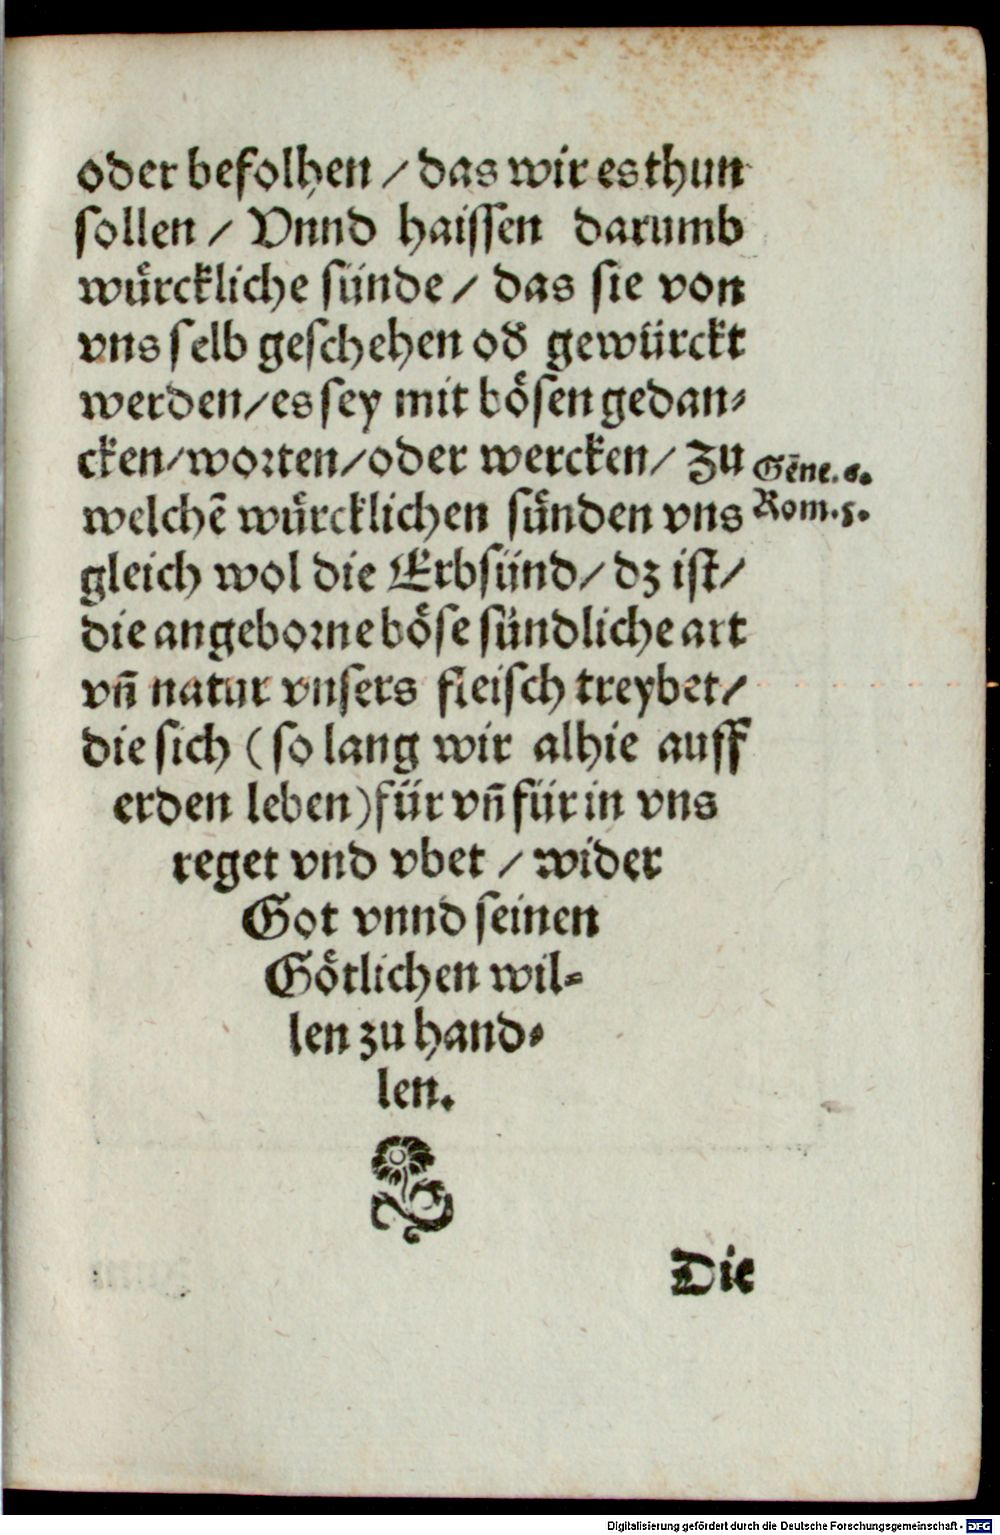 oder befolhen / das wir es thun
sollen / Vnnd haissen darumb
wuͤrckliche sünde / das sie von
vns selb geschehen od̓ gewürckt
werden / es sey mit boͤsen gedan⸗
cken / worten / oder wercken / Zu
Gēne. 6.
welchē wuͤrcklichen suͤnden vns
Rom. 5.
gleich wol die Erbsünd / dz ist /
die angeborne boͤse sündliche art
vn̄ natur vnsers fleisch treybet /
die sich (so lang wir alhie auff
erden leben) für vn̄ für in vns
reget vnd vbet / wider
Got vnnd seinen
Goͤtlichen wil⸗
len zu hand⸗
len.
Die
Digitalisierung gefördert durch die Deutsche Forschungsgemeinschaft - DFG